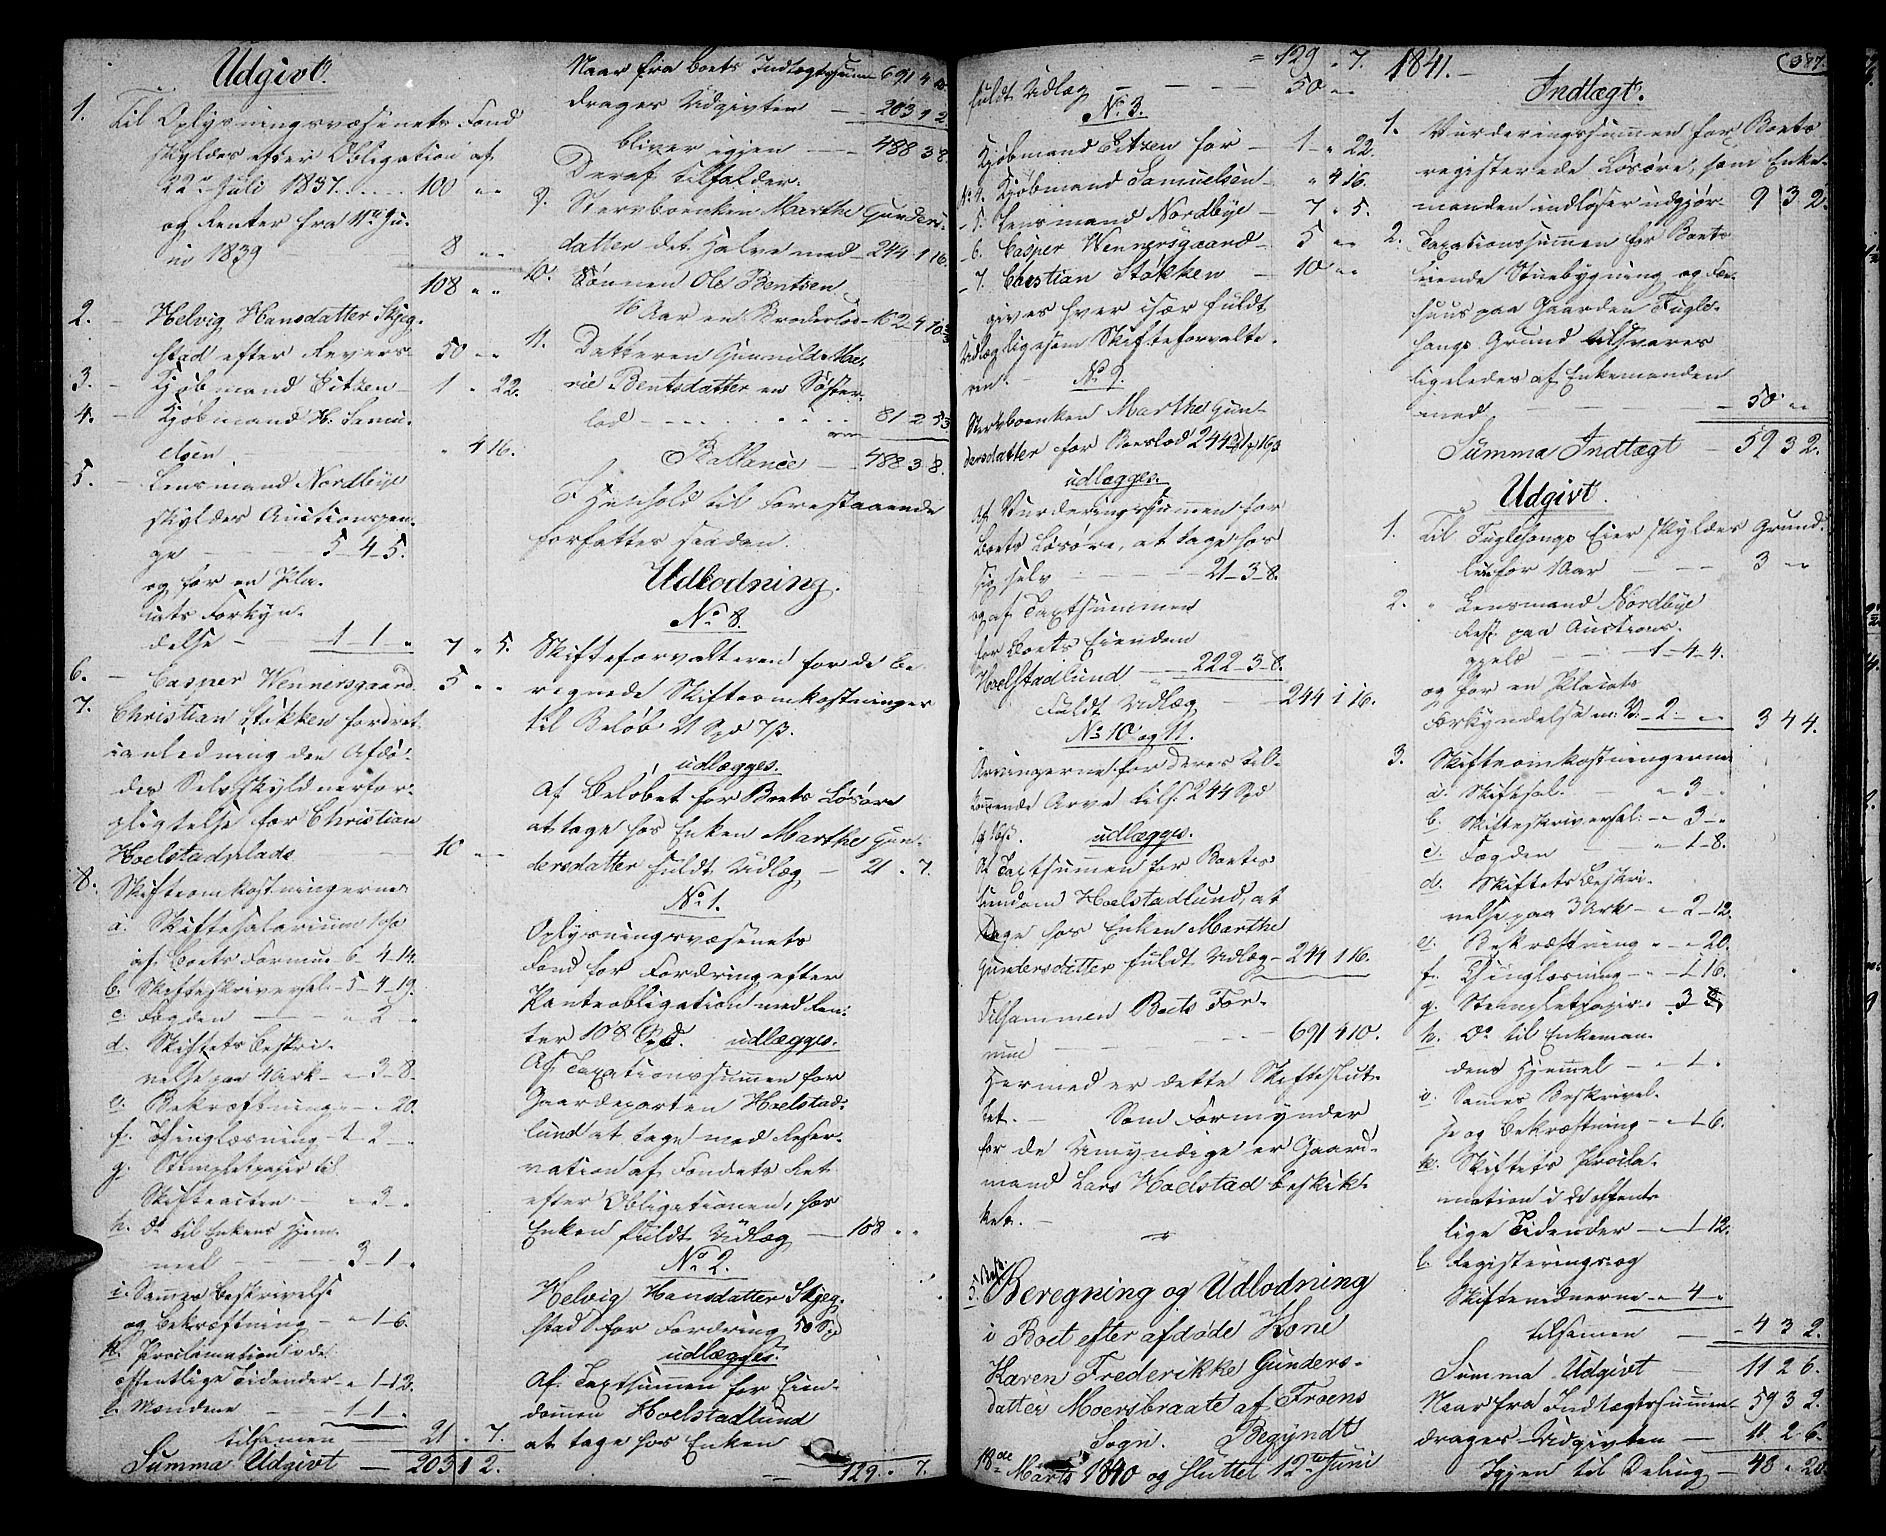 Udgivt.
1. Til Oplysningsvæsenets Fond
skyldes efter Obligation af
22de Juli 1837 .... 100 " "
og Renter fra 11te Ju-
ni 1839 — 8 " "
108 " "
2. Helvig Hansdatter Skjeg-
stad efter Revers — 50 " "
3. — Kjøbmand Eitzen — 1 " 22.
4. — Kjøbmand H. Samu-
elsen — " 4 16.
5. — Lensmand Nordbye
skyldes Auctionspen-
ge — 5-4-5.
og for en Pla-
cats Forkyn-
delse — 1-1-" 7 " 5.
6. — Casper Wennersgaard 5 " "
7. Christian Støkken fordret
i anledning den Afdø-
des Selvskyldnerfor-
pligtelse for Christian
Hoelstadplads — 10 " "
8. Skifteomkostningerne:
a. Skiftesalarium 1 pC
af Boets Formue 6-4-14.
b. Skifteskriversal: 5-4-19.
c. Fogden — " 2 "
d. Skiftets Beskri-
velse paa 4 Ark — " -3-8.
e. Bekræftning " - " 20.
f. Thinglæsning - 1 2 - "
g. Stemplet papir til
Skifteacten — " 3 "
h. Do til Enkens Hjem-
mel — 3-1-"
i. Sammes Beskrivelse
og Bekræftning — " 1-6.
k. Proclamation i de
offentlige Tidender - " 1-12.
l. Mændene — 1-1-"
tilsamen — 21 " 7.
Summa Udgivt — 203 1 2.
Naar fra Boets Indtægtssum 691 4 10.
drages Udgivten — 203 1 2
bliver igjen — 488 3 8.
Deraf tilfalder:
9. Stervboenken Marthe Gunders-
datter det Halve med — 244-1 16.
10. Sønnen Ole Bentsen
16 Aar en Broderlod — 162-4 10
11. Datteren Gunnild Ma-
rie Bentsdatter en Søster-
lod — 81 2 5
Ballance — 488 3 8.
I Henhold til Forestaaende
forfattes saadan
Udlodning.
No 8.
Skifteforvalteren for de be-
regnede Skifteomkostninger
til Beløb 21 Spd 7 ß.
udlægges.
Af Beløbet for Boets Løsøre
at tage hos Enken Marthe Gun-
dersdatter fuldt Udlæg — 21 " 7.
No 1.
Oplysningsvæsenets
Fond for Fordring efter
Panteobligation med Ren-
ter 108 Spd. udlægges.
Af Taxationssummen for
Gaardeparten Hoelstad-
lund at tage med Reser-
vation af Fondets Ret
efter Obligationen, hos
Enken fuldt Udlæg — 108 " "
No 2.
Helvig Hansdatter Skjeg-
stad for Fordring 50 Spd
udlægges.
Af Taxtsummen for Eien-
dommen Hoelstadlund
at tage hos Enken
= 129 " 7.
= 129 " 7.
fuldt Udlæg — 50 " "
No 3.
Kjøbmand Eitzen for — 1 " 22.
No 4. Kjøbmand Samuelsen — " 4 16.
- 5. Lensmand Nordbye — 7 " 5.
- 6. Casper Wennersgaard — 5 " "
- 7. Christian Støkken — 10 " "
gives hver især fuldt
Udlæg ligesom Skifteforvalte-
ren. — No 9.
Stervboenken Marthe Gun-
dersdatter for Boeslod 244 Spd 1 16 ß
udlægges.
Af Vurderingssummen for
Boets Løsøre, at tage hos
sig selv — 21-3-8.
og af Taxtsummen
for Boets Eiendom
Hoelstadlund — 222-3-8.
Fuldt Udlæg — 244 1 16.
No 10 og 11.
Arvingerne for deres til-
kommende Arve tils. 244 Spd
1 16 ß. udlægges.
Af Taxtsummen for Boets
Eiendom Hoelstadlund, at
tage hos Enken Marthe
Gundersdatter fuldt Udlæg — 244 1 16.
Tilsammen Boets For-
mue — 691 4 10.
Hermed er dette Skifte slut-
tet. — Som Formynder
for de Umyndige er Gaard-
mand Lars Hoelstad beskik-
ket. —
5. Beregning og Udlodning
i Boet efter afdøde Kone
Karen Frederikke Gunders-
datter Moersbraate af Froens
Sogn. Begyndt
18de Marts 1840 og sluttet 12te Juni
1841. —
387.
Indtægt.
1. Vurderingssummen for Boets
registerede Løsøre, som Enke-
manden indløser udgjør 9 3 2.
2. Taxationssummen for Boets
eiende Stuebygning og Fæ-
huus paa Gaarden Fugle-
sangs Grund tilsvares
ligeledes af Enkemanden
med — 50 " "
Summa Indtægt — 59 3 2.
Udgivt.
1. Til Fuglesangs Eier skyldes Grund-
leie for 1 Aar — 3 " "
2. " Lensmand Nordbye
Rest paa Auctions-
gjæld — 1-4-4.
og for en Placats
Forkyndelse m: V: 2 - " 3 4 4.
3. Skifteomkostningerne
a. Skiftesal. — " 3 - "
b. Skifteskriversal: - " 3 - "
c. Fogden — " 1-8.
d. Skiftets Beskri-
velse paa 3 Ark — " 2-12.
e. Bekræftning " - " 20.
f. Thinglæsning - " 1 16.
g. Stemplet papir " 3
h. Do til Enkeman-
dens Hjemmel — " 1 - "
i. Sames Beskrivel-
se og Bekræftning — " 1-6.
k. Skiftets Procla-
mation i de offent-
lige Tidender — " 1 12.
l. Registerings og
Skiftevidnerne " 4 - "
tilsamen — 4 3 2.
Summa Udgivt — 11 2 6.
Naar fra Indtægtssummen 59 3 2.
drages Udgivten — 11 2 6.
Igjen til Deling — 48 " 20.